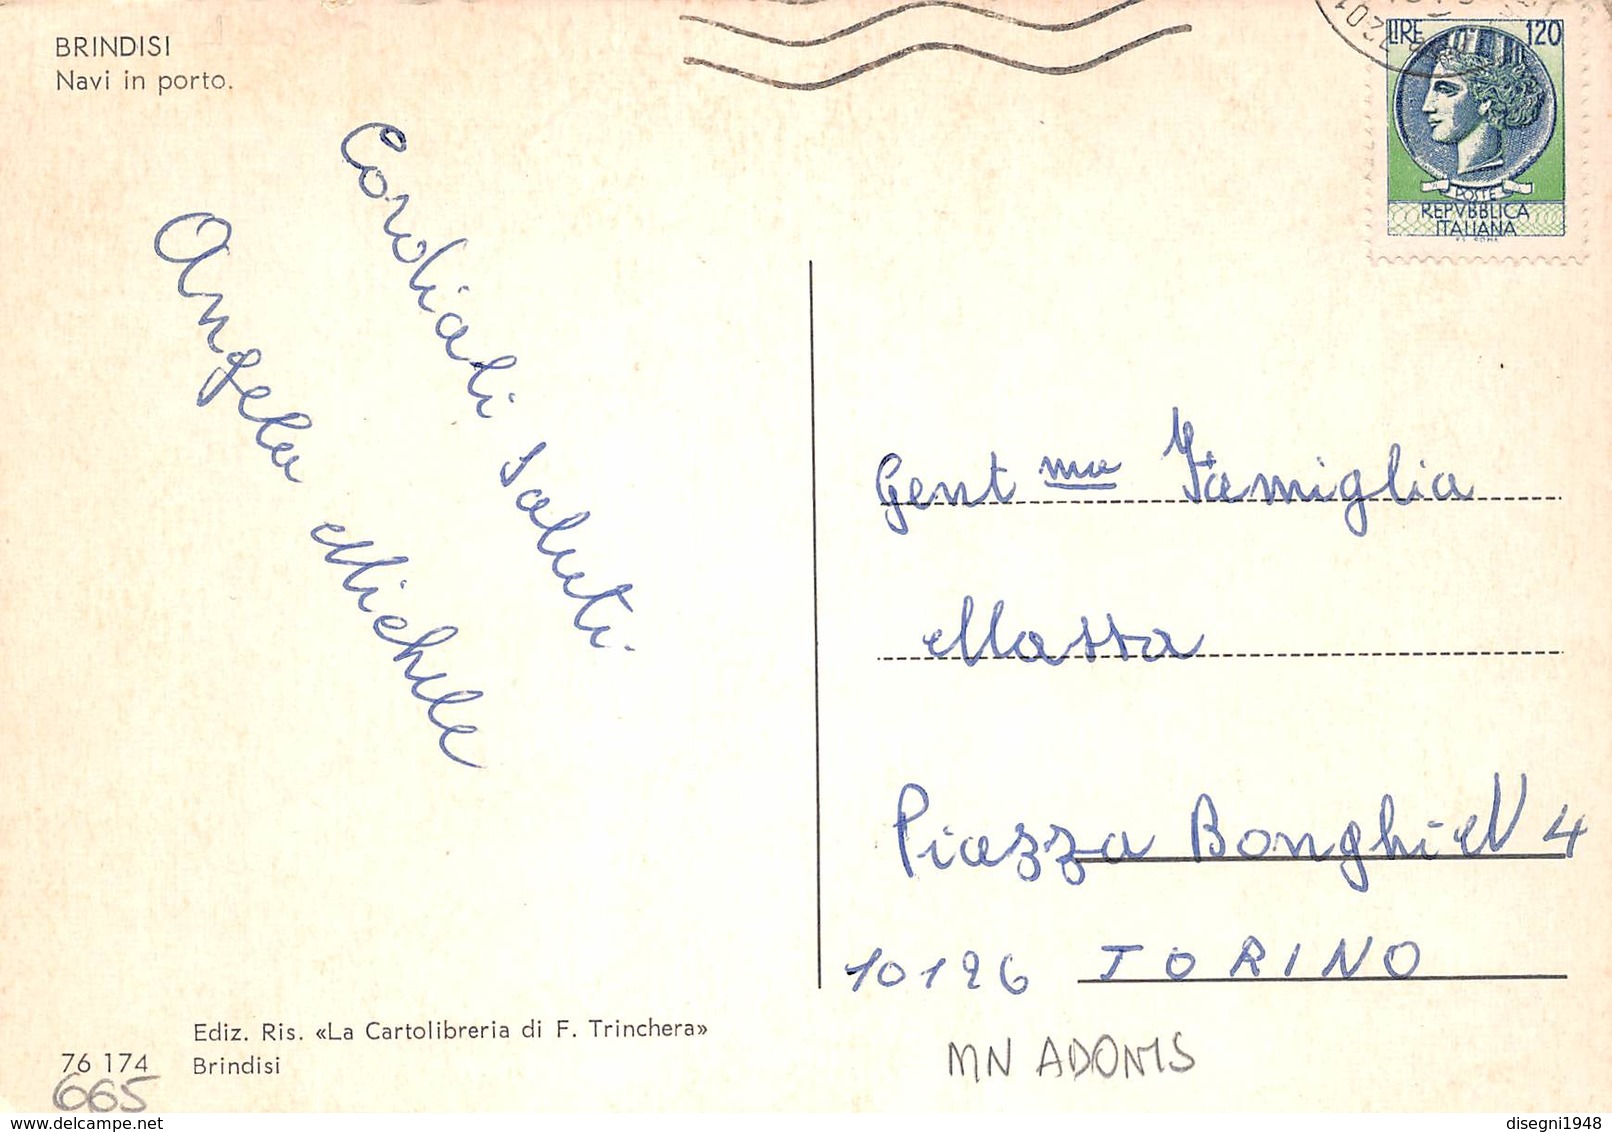 BRINDISI
Navi in porto.
LIRE 120
POSTE
REPVBBLICA
ITALIANA
Cordiali Saluti.
Angela Michele
Gent ma Famiglia
Massa
Piazza Bonghi N 4
10126 TORINO
Ediz. Ris. «La Cartolibreria di F. Trinchera»
76 174 Brindisi
665
MN ADONIS
disegni1948